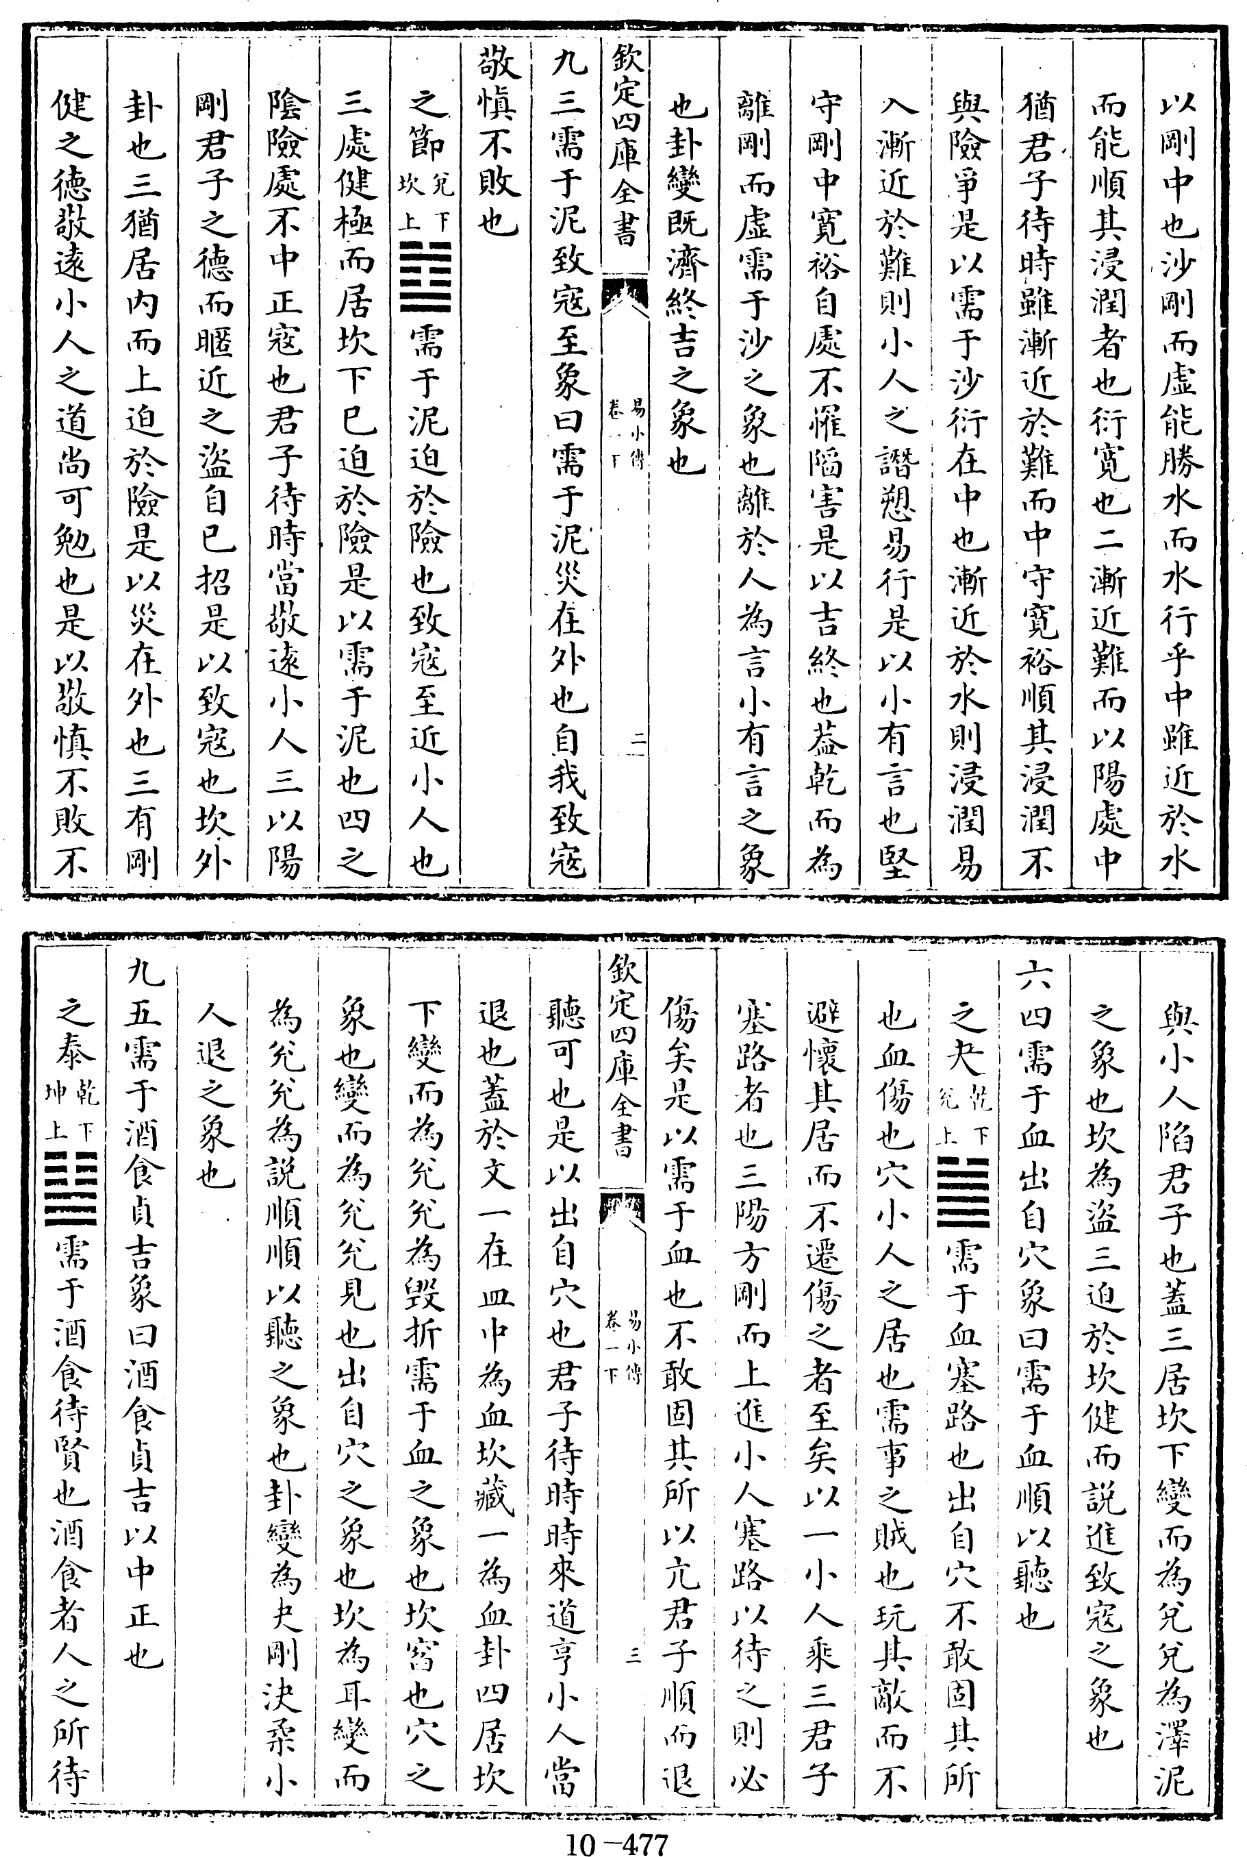 以剛中也沙剛而虛能勝水而水行乎中雖近於水
而能順其浸潤者也衍寛也二漸近難而以陽處中
猶君子待時雖漸近於難而中守寛裕順其浸潤不
與險爭是以需于沙衍在中也漸近於水則浸潤易
入漸近於難則小人之譖愬易行是以小有言也堅
守剛中寛裕自處不罹陷害是以吉終也葢乾而為
離剛而虛需于沙之象也離於人為言小有言之象
也卦變既濟終吉之象也
欽定四庫全書
易小傳
卷一下
二
九三需于泥致寇至象曰需于泥災在外也自我致寇
敬慎不敗也
之節兌下坎上䷻需于泥迫於險也致寇至近小人也
三處健極而居坎下已迫於險是以需于泥也四之
陰險處不中正寇也君子待時當敬遠小人三以陽
剛君子之德而暱近之盜自已招是以致寇也坎外
卦也三猶居内而上迫於險是以災在外也三有剛
健之德敬遠小人之道尚可勉也是以敬慎不敗不
與小人陷君子也蓋三居坎下變而為兌兌為澤泥
之象也坎為盜三迫於坎健而說進致寇之象也
六四需于血出自穴象曰需于血順以聽也
之夬乾下兌上䷪需于血塞路也出自穴不敢固其所
也血傷也穴小人之居也需事之賊也玩其敵而不
避懷其居而不遷傷之者至矣以一小人乘三君子
塞路者也三陽方剛而上進小人塞路以待之則必
傷矣是以需于血也不敢固其所以亢君子順而退
欽定四庫全書
易小傳
卷一下
三
聽可也是以出自穴也君子待時時來道亨小人當
退也蓋於文一在皿中為血坎藏一為血卦四居坎
下變而為兌兌為毀折需于血之象也坎窞也穴之
象也變而為兌兌見也出自穴之象也坎為耳變而
為兌兌為說順順以聽之象也卦變為夬剛決柔小
人退之象也
九五需于酒食貞吉象曰酒食貞吉以中正也
之泰乾下坤上䷊需于酒食待賢也酒食者人之所待
10-477